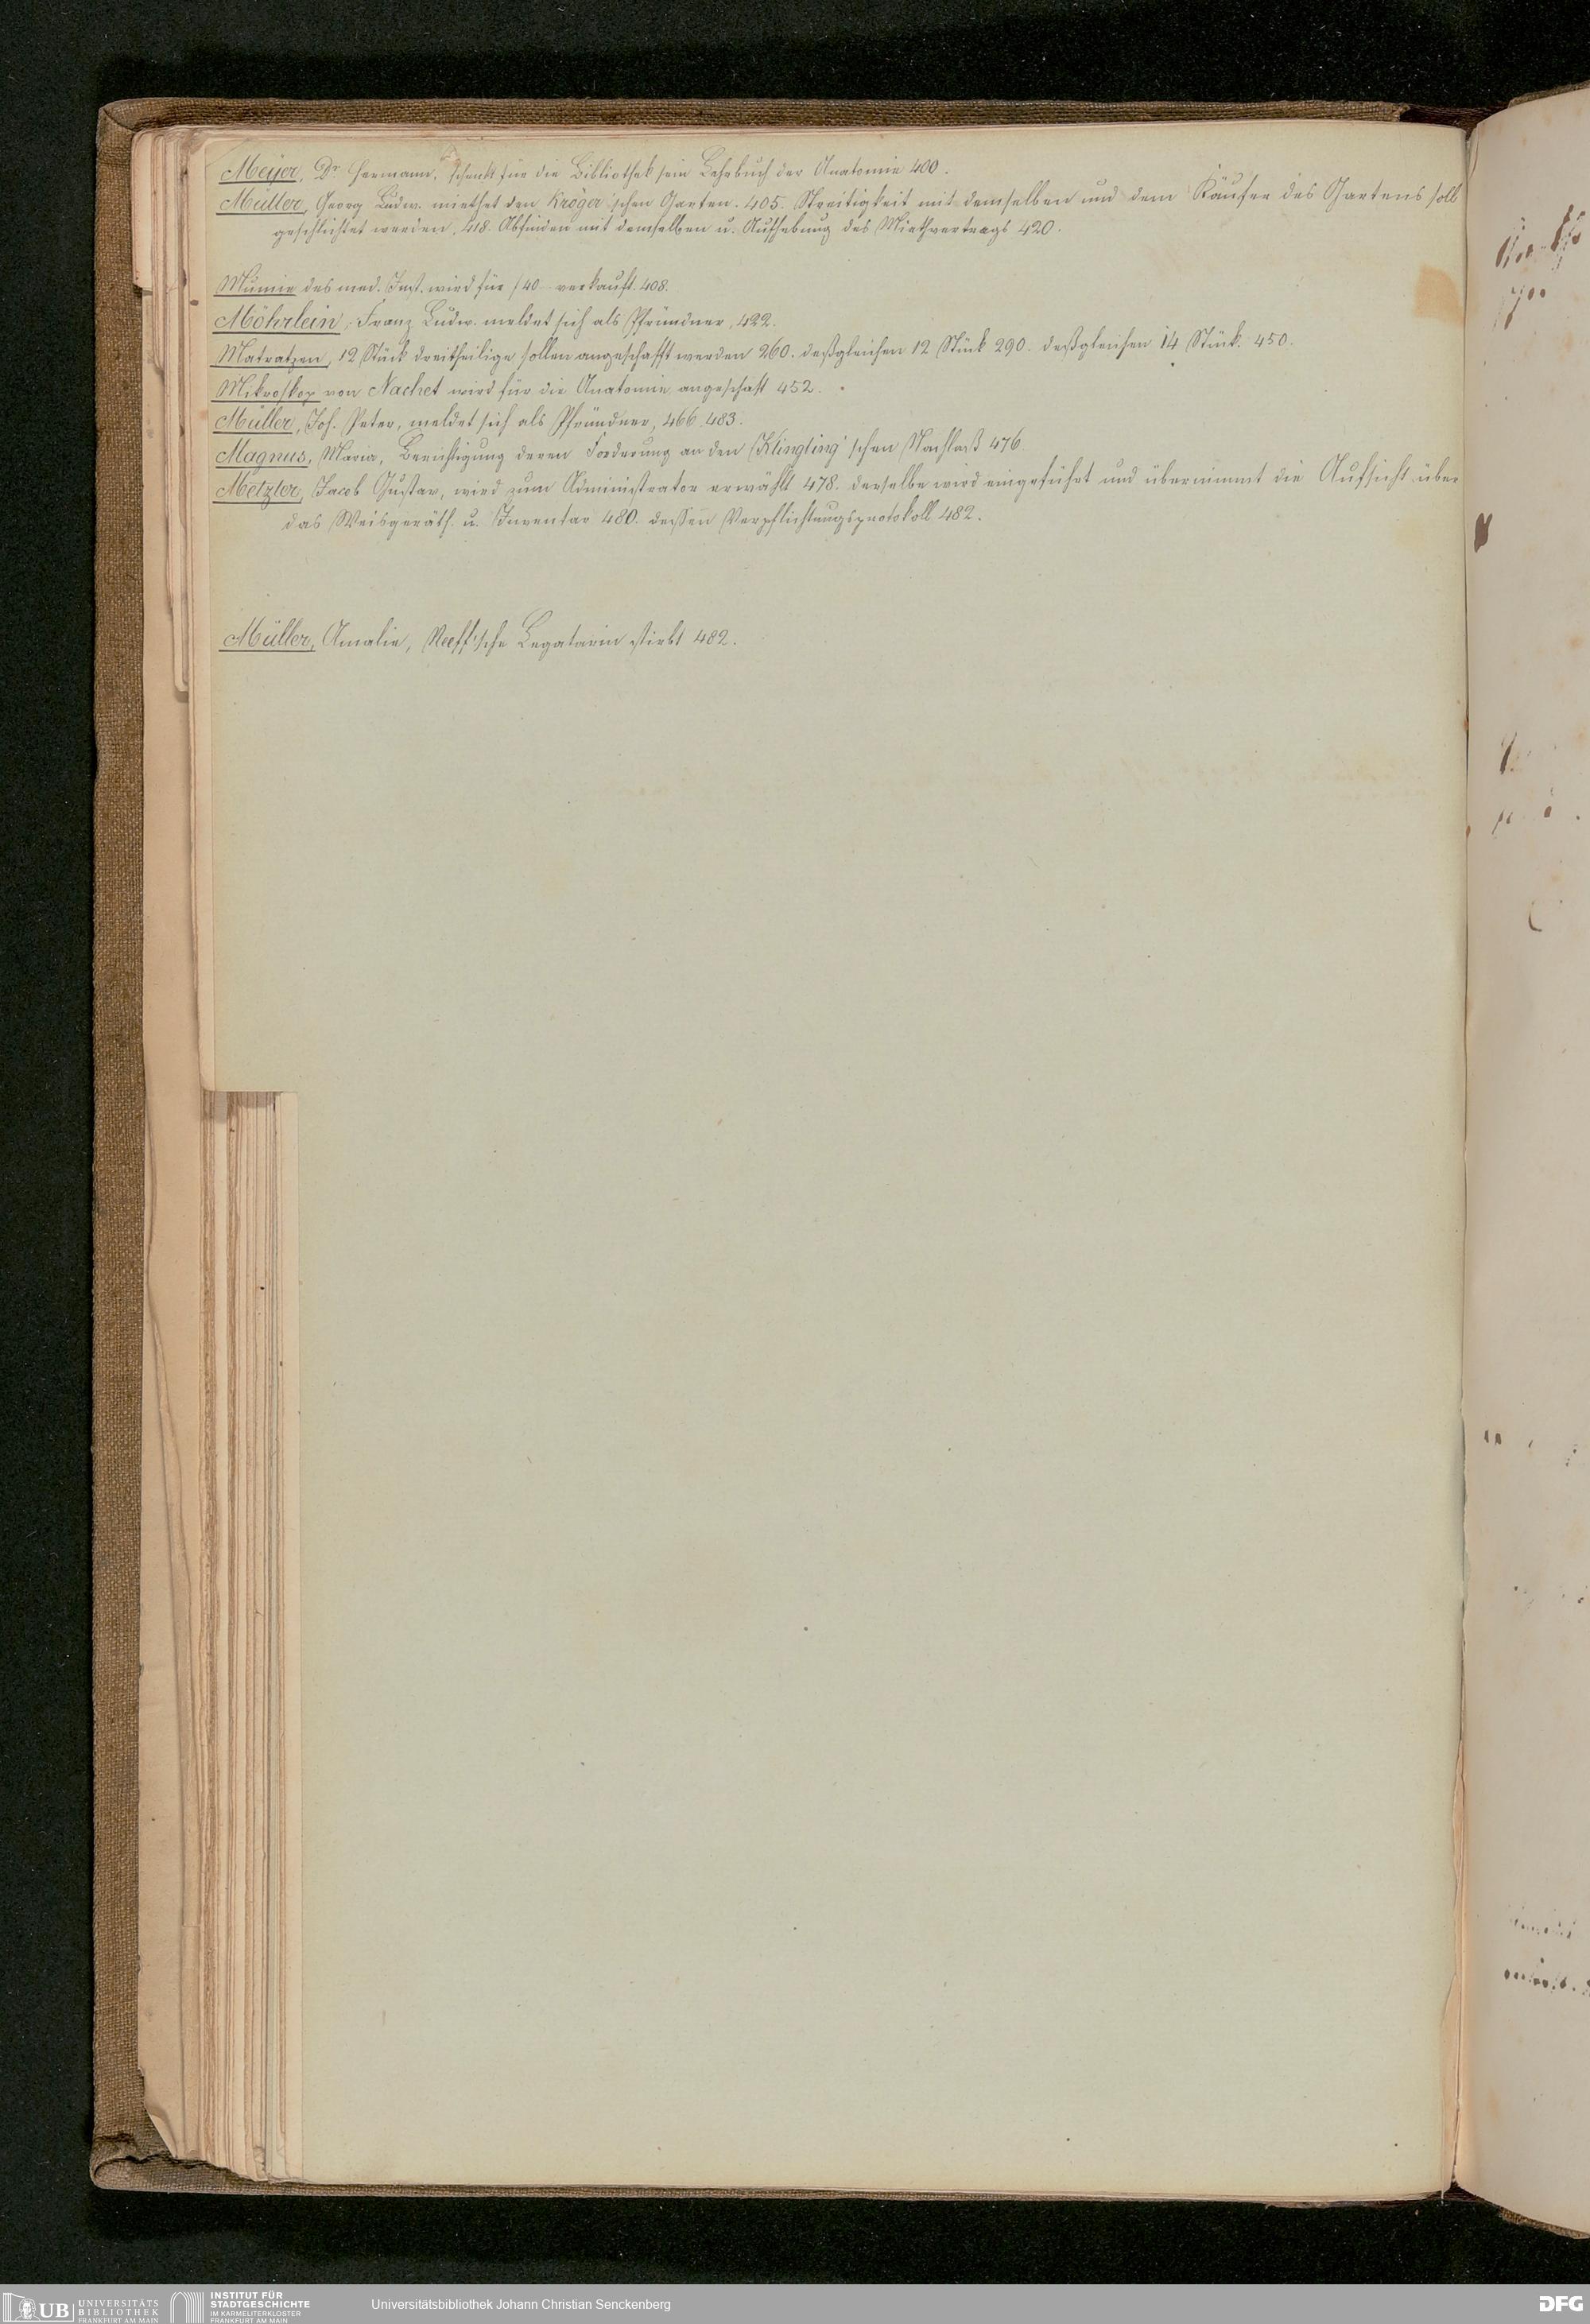 Meyer, Dr Hermann, schenkt für die Bibliothek sein Lehrbuch der Anatomie 400.
Müller, Georg Ludw. miethet den Kröger'schen Garten. 405. Streitigkeit mit demselben und dem Käufer des Gartens soll
geschlichtet werden. 418. Abfinden mit demselben u. Aufhebung des Miethvertrags 420.
Mumie des med. Inst. wird für f 40 verkauft. 408.
Möhrlein, Franz Ludw. meldet sich als Pfründner, 422.
Matratzen, 12 Stück dreitheilige sollen angeschafft werden 260. deßgleichen 12 Stück 290. deßgleichen 14 Stück. 450.
Mikroskop von Nachet wird für die Anatomie angeschaft 452.
Müller, Joh. Peter, meldet sich als Pfründner, 466. 483.
Magnus, Maria, Berichtigung deren Forderung an den Klingling'schen Nachlaß 476.
Metzler, Jacob Gustav, wird zum Administrator erwählt 478. derselbe wird eingeführt und übernimmt die Aufsicht über
das Weisgeräth u. Inventar 480. dessen Verpflichtungsprotokoll 482.
Müller, Amalie, Neeff'sche Legatarin stirbt 482.
UB UNIVERSITÄTS
BIBLIOTHEK
FRANKFURT AM MAIN
INSTITUT FÜR
STADTGESCHICHTE
IM KARMELITERKLOSTER
FRANKFURT AM MAIN
Universitätsbibliothek Johann Christian Senckenberg
DFG